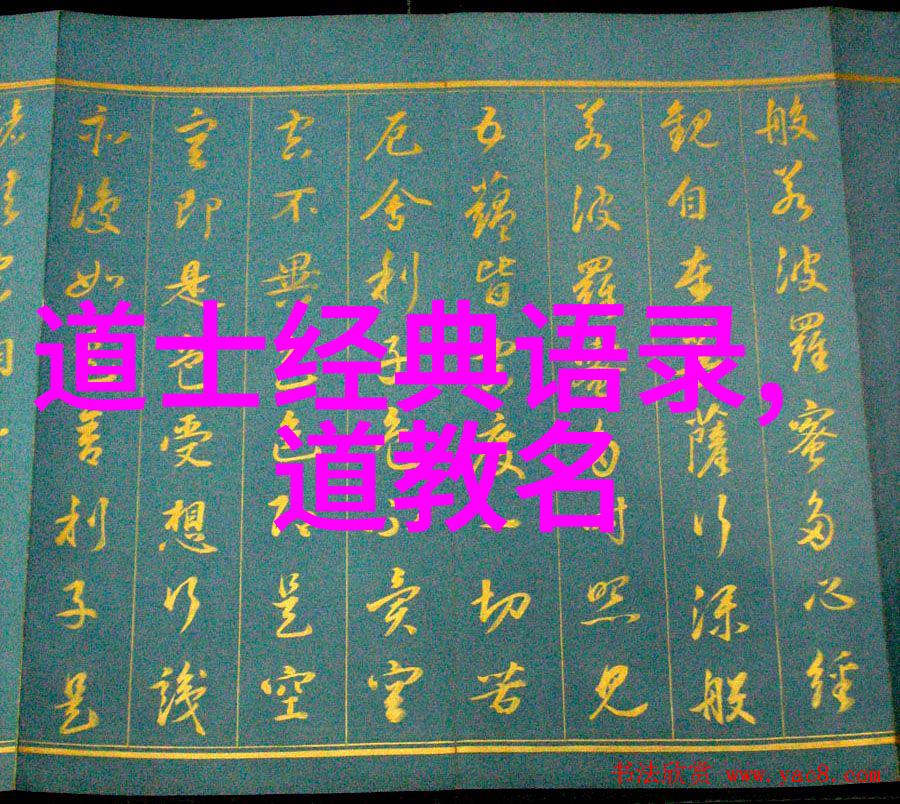 般若波羅蜜多心經
觀自在菩薩行深般
若波羅蜜多時照見
五蘊皆空度一切苦
厄舍利子色不異空
空不異色色即是空
空即是色受想行識
亦復如是舍利子是
道士经典语录,
道教名
书法欣赏 www.yac8.com